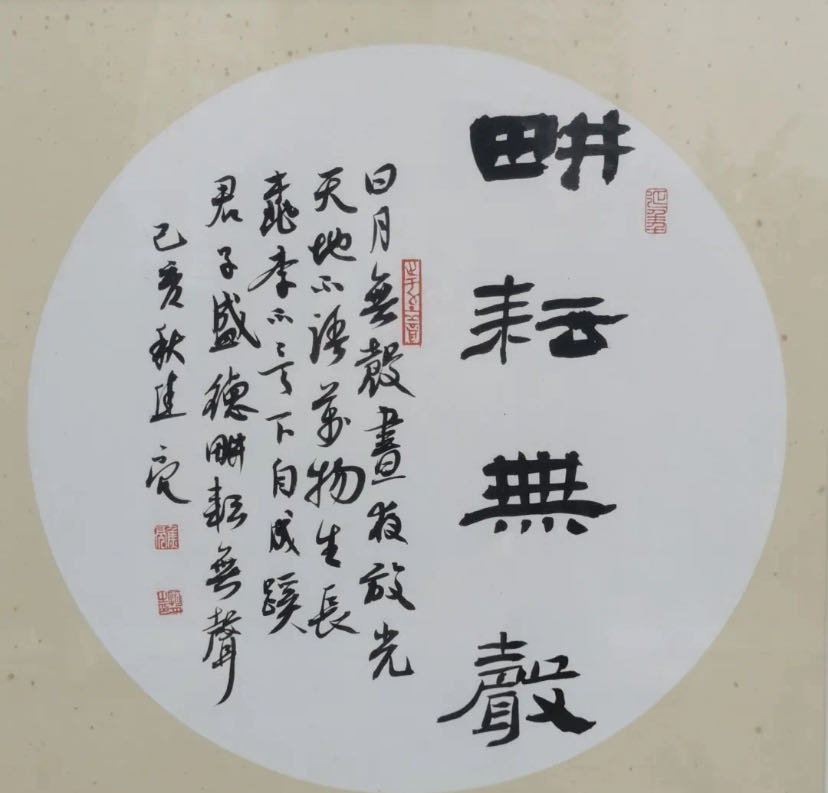 畊耘無聲
日月無聲晝夜放光
天地不語萬物生長
桃李不言下自成蹊
君子盛德畊耘無聲
己亥秋建亮